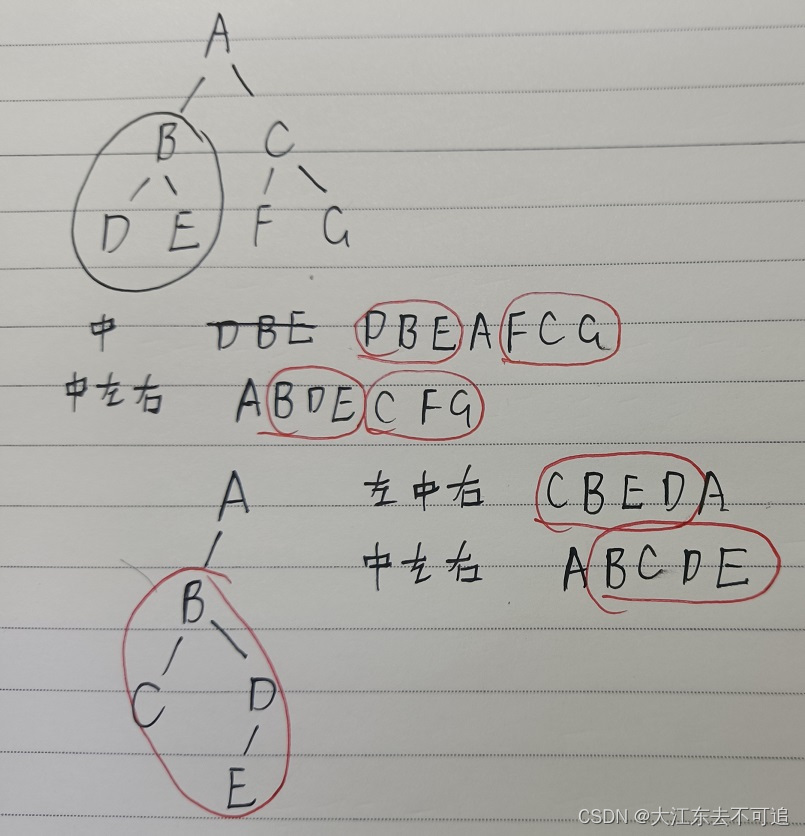 A
B C
D E F G
中 DBE DBE A FCG
中左右 A BDE C FG
A 左中右 CBEDA
中左右 ABCDE
B
C D
E
CSDN @大江东去不可追